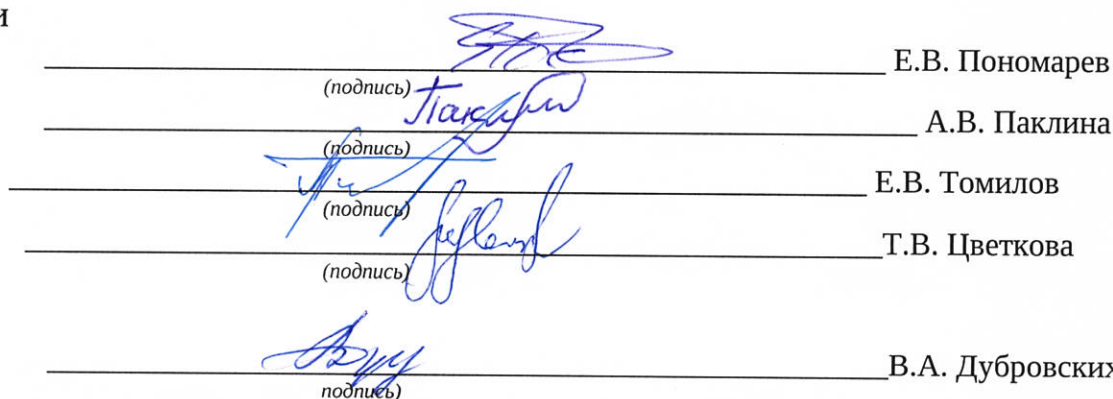 и
Е.В. Пономарев
(подпись)
А.В. Паклина
(подпись)
Е.В. Томилов
(подпись)
Т.В. Цветкова
(подпись)
В.А. Дубровских
подпись)